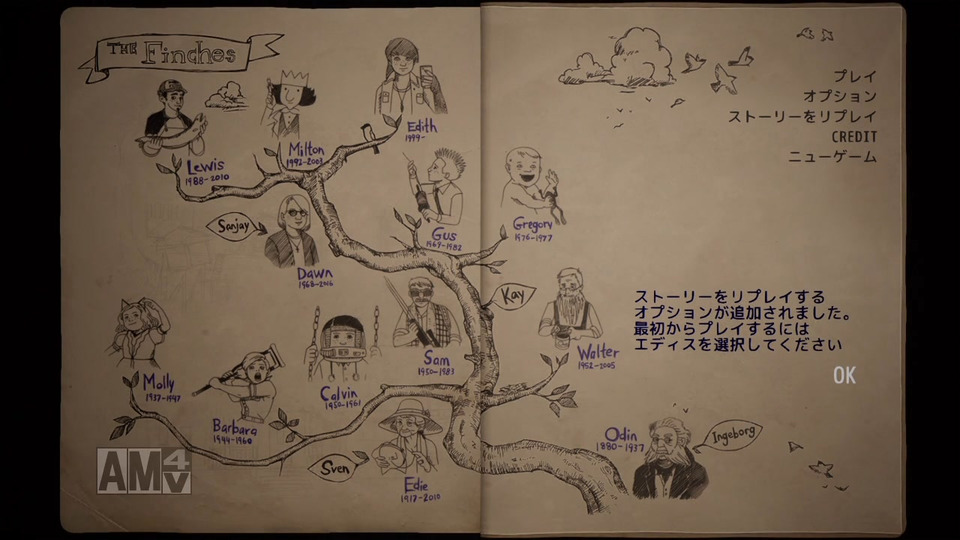 THE Finches
Lewis
1988-2010
Milton
1992-2003
Edith
1999-
Sanjay
Dawn
1968-2016
Gus
1969-1982
Gregory
1976-1977
Kay
Sam
1950-1983
Walter
1952-2005
Molly
1937-1947
Barbara
1944-1960
Calvin
1950-1961
Sven
Edie
1917-2010
Odin
1880-1937
Ingeborg
プレイ
オプション
ストーリーをリプレイ
CREDIT
ニューゲーム
ストーリーをリプレイする
オプションが追加されました。
最初からプレイするには
エディスを選択してください
OK
AM4V